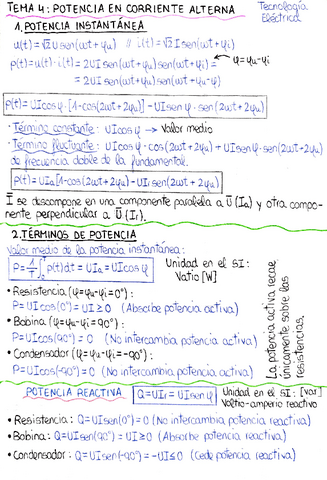 TEMA 4: POTENCIA EN CORRIENTE ALTERNA
Tecnología Eléctrica
1. POTENCIA INSTANTÁNEA
u(t)=√2 U sen(ωt+φu) // i(t)=√2 I sen(ωt+φi)
p(t)=u(t)·i(t)=2UI sen(ωt+φu)·sen(ωt+φi)= φ=φu-φi
=2UI sen(ωt+φu)·sen(ωt+φu-φ)
p(t)=UIcosφ·[1-cos(2ωt+2φu)]-UIsenφ·sen(2ωt+2φu)
· Término constante: UIcosφ → Valor medio
· Término fluctuante: UIcosφ·cos(2ωt+2φu)+UIsenφ·sen(2ωt+2φu)
de frecuencia doble de la fundamental.
p(t)=UIa[1-cos(2ωt+2φu)]-UIr sen(2ωt+2φu)
I se descompone en una componente paralela a U (Ia) y otra compo-
nente perpendicular a U (Ir).
2. TÉRMINOS DE POTENCIA
Valor medio de la potencia instantánea:
P=1/T∫p(t)dt=UIa=UIcosφ
Unidad en el SI:
Vatio [W]
• Resistencia (φ=φu-φi=0°):
P=UIcos(0°)=UI≥0 (Absorbe potencia activa)
• Bobina (φ=φu-φi=90°):
P=UIcos(90°)=0 (No intercambia potencia activa)
• Condensador (φ=φu-φi=-90°):
P=UIcos(-90°)=0 (No intercambia potencia activa)
La potencia activa recae
únicamente sobre las
resistencias.
POTENCIA REACTIVA Q=UIr=UIsenφ Unidad en el SI: [Var]
Voltio-amperio reactivo
• Resistencia: Q=UIsen(0°)=0 (No intercambia potencia reactiva)
• Bobina: Q=UIsen(90°)=UI≥0 (Absorbe potencia reactiva)
• Condensador: Q=UIsen(-90°)=-UI≤0 (Cede potencia reactiva)